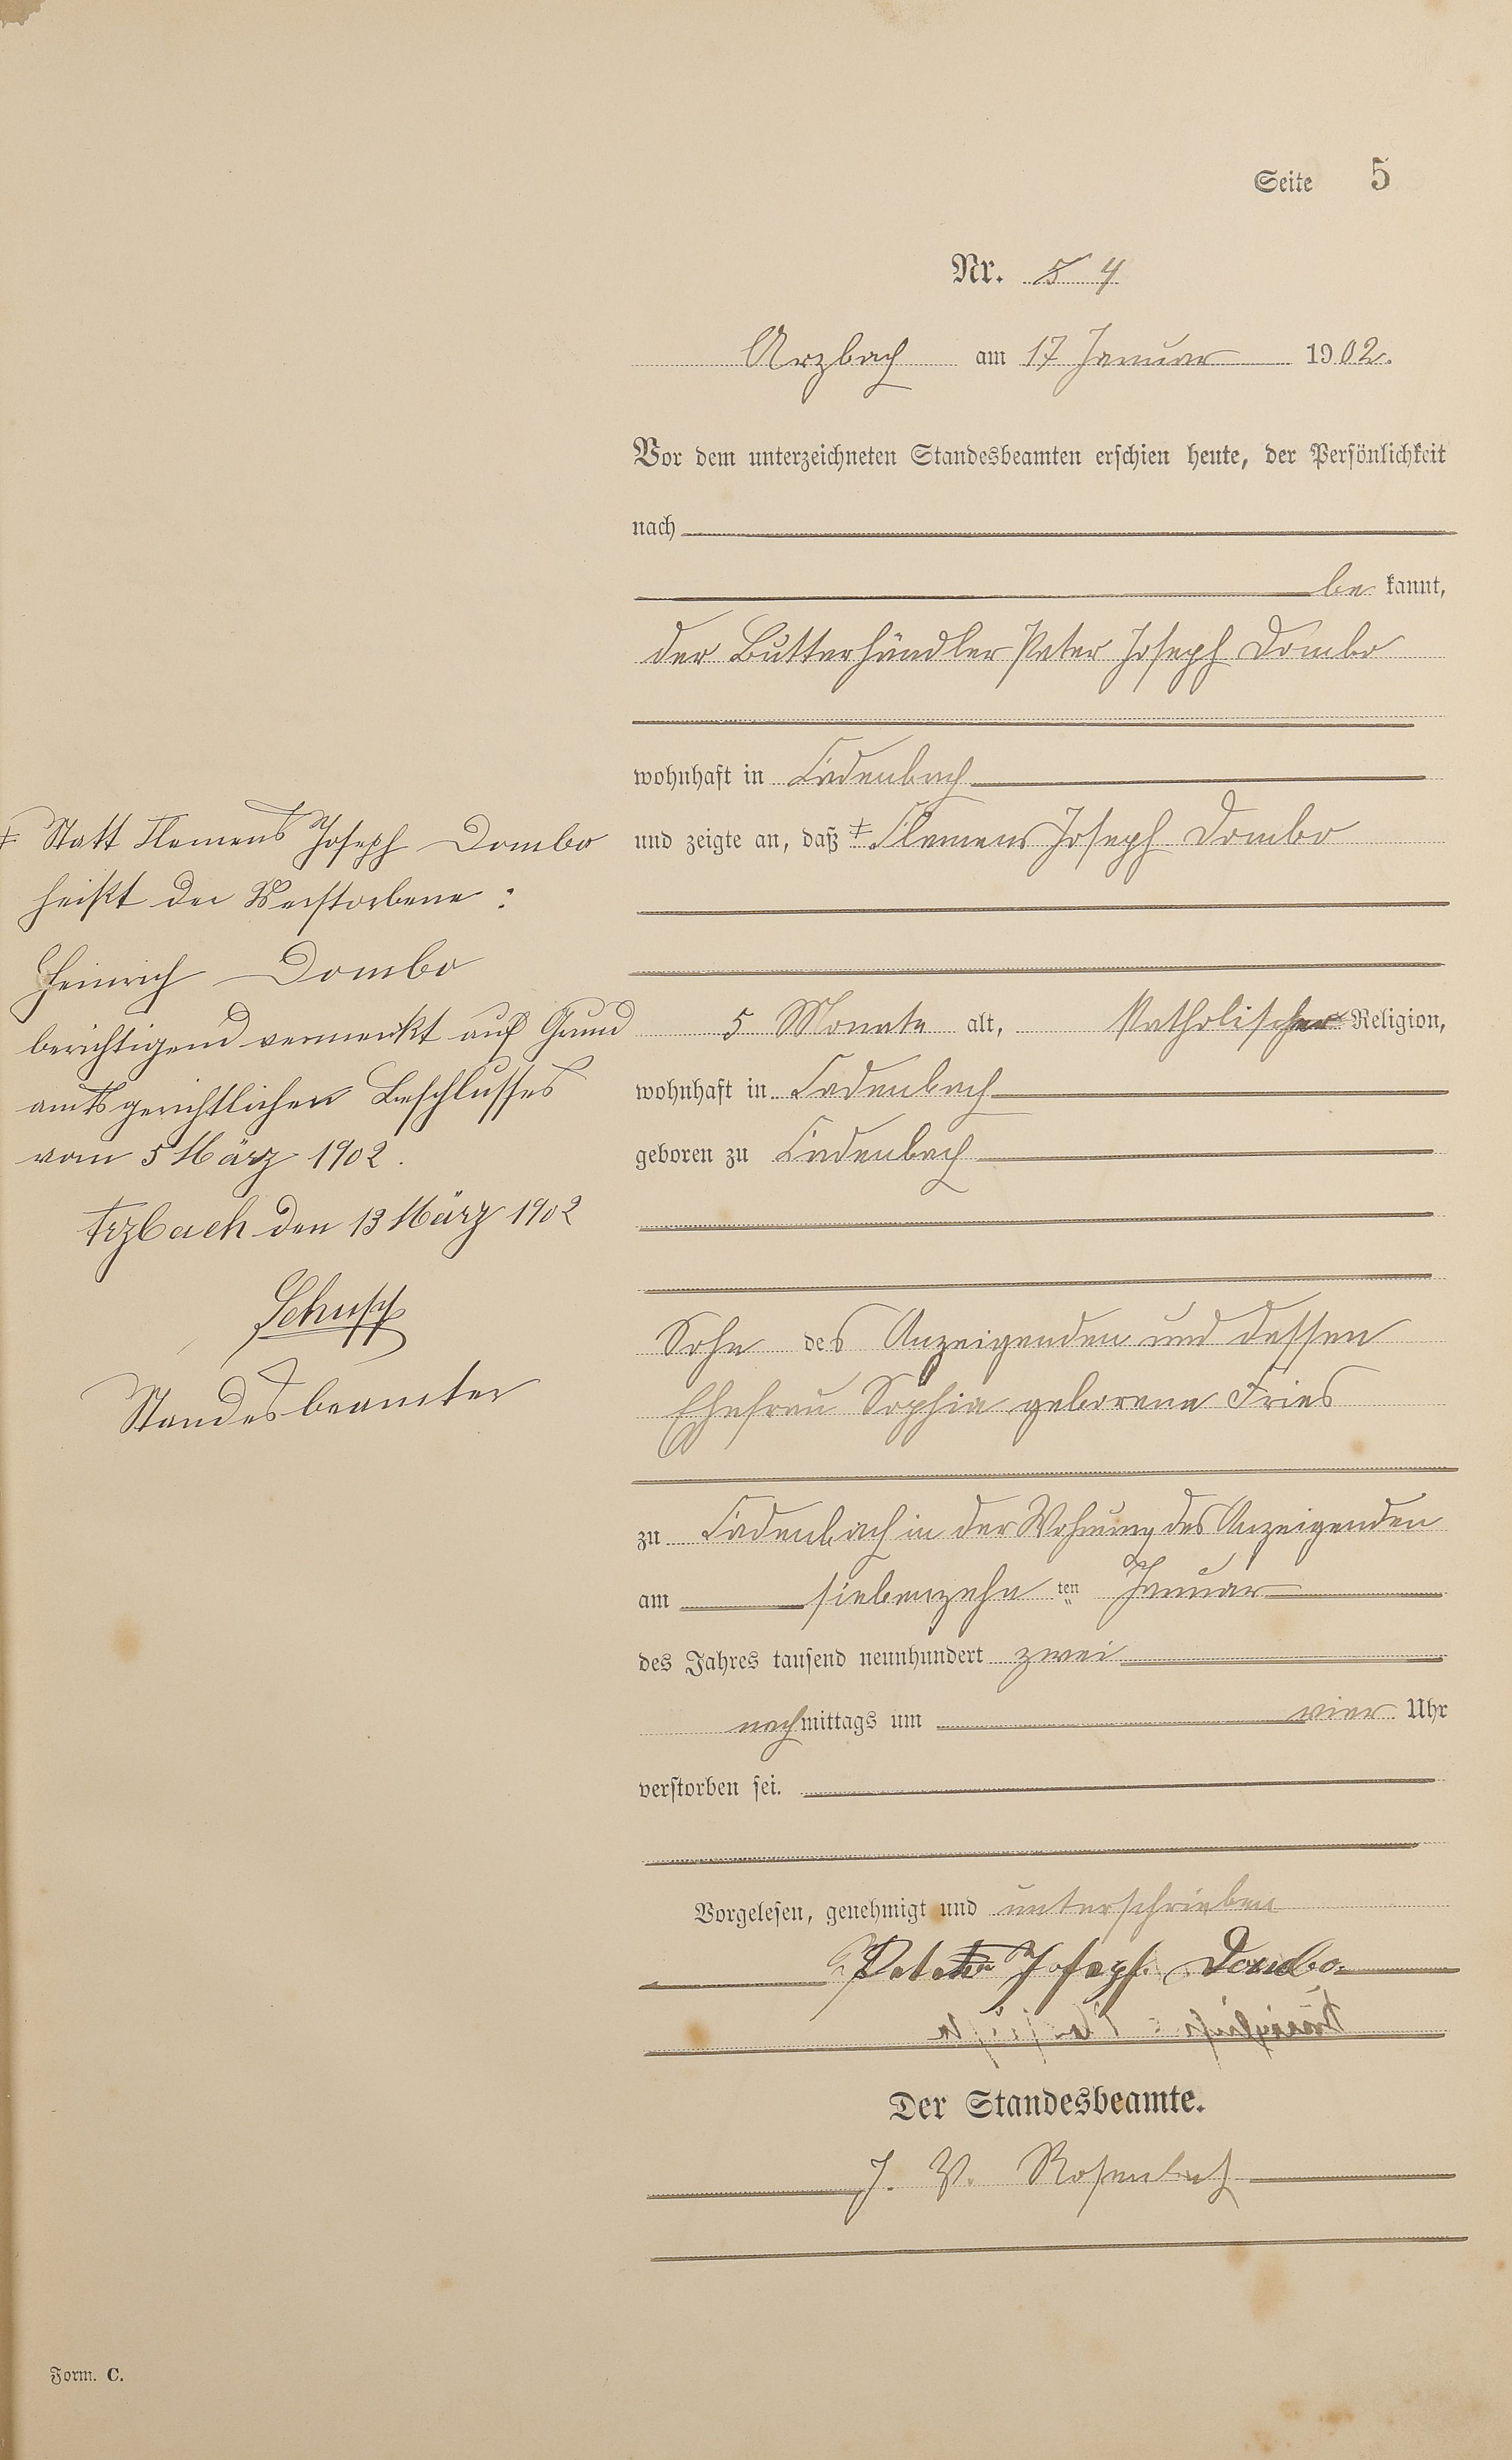 Seite 5
Nr. 5 4
Arzbach am 17 Januar 1902.
Vor dem unterzeichneten Standesbeamten erschien heute, der Persönlichkeit
nach
be kannt,
der Butterhändler Peter Joseph Dombo
wohnhaft in Cadenbach
und zeigte an, daß ‡ Clemens Joseph Dombo
5 Monate alt, katholischer Religion,
wohnhaft in Cadenbach
geboren zu Cadenbach
Sohn des Anzeigenden und dessen
Ehefrau Sophia geborene Fries
zu Cadenbach in der Wohnung des Anzeigenden
am siebenzehn ten Januar
des Jahres tausend neunhundert zwei
nachmittags um vier Uhr
verstorben sei.
Vorgelesen, genehmigt und unterschrieben
Peter Joseph Dombo
Der Standesbeamte.
J. V. Rosenbach
‡ Statt Clemens Joseph Dombo
heißt der Verstorbene :
Heinrich Dombo
berichtigend vermerkt auf Grund
amtsgerichtlichen Beschlusses
vom 5 März 1902.
Arzbach den 13 März 1902
Schupp
Standesbeamter
Form. C.